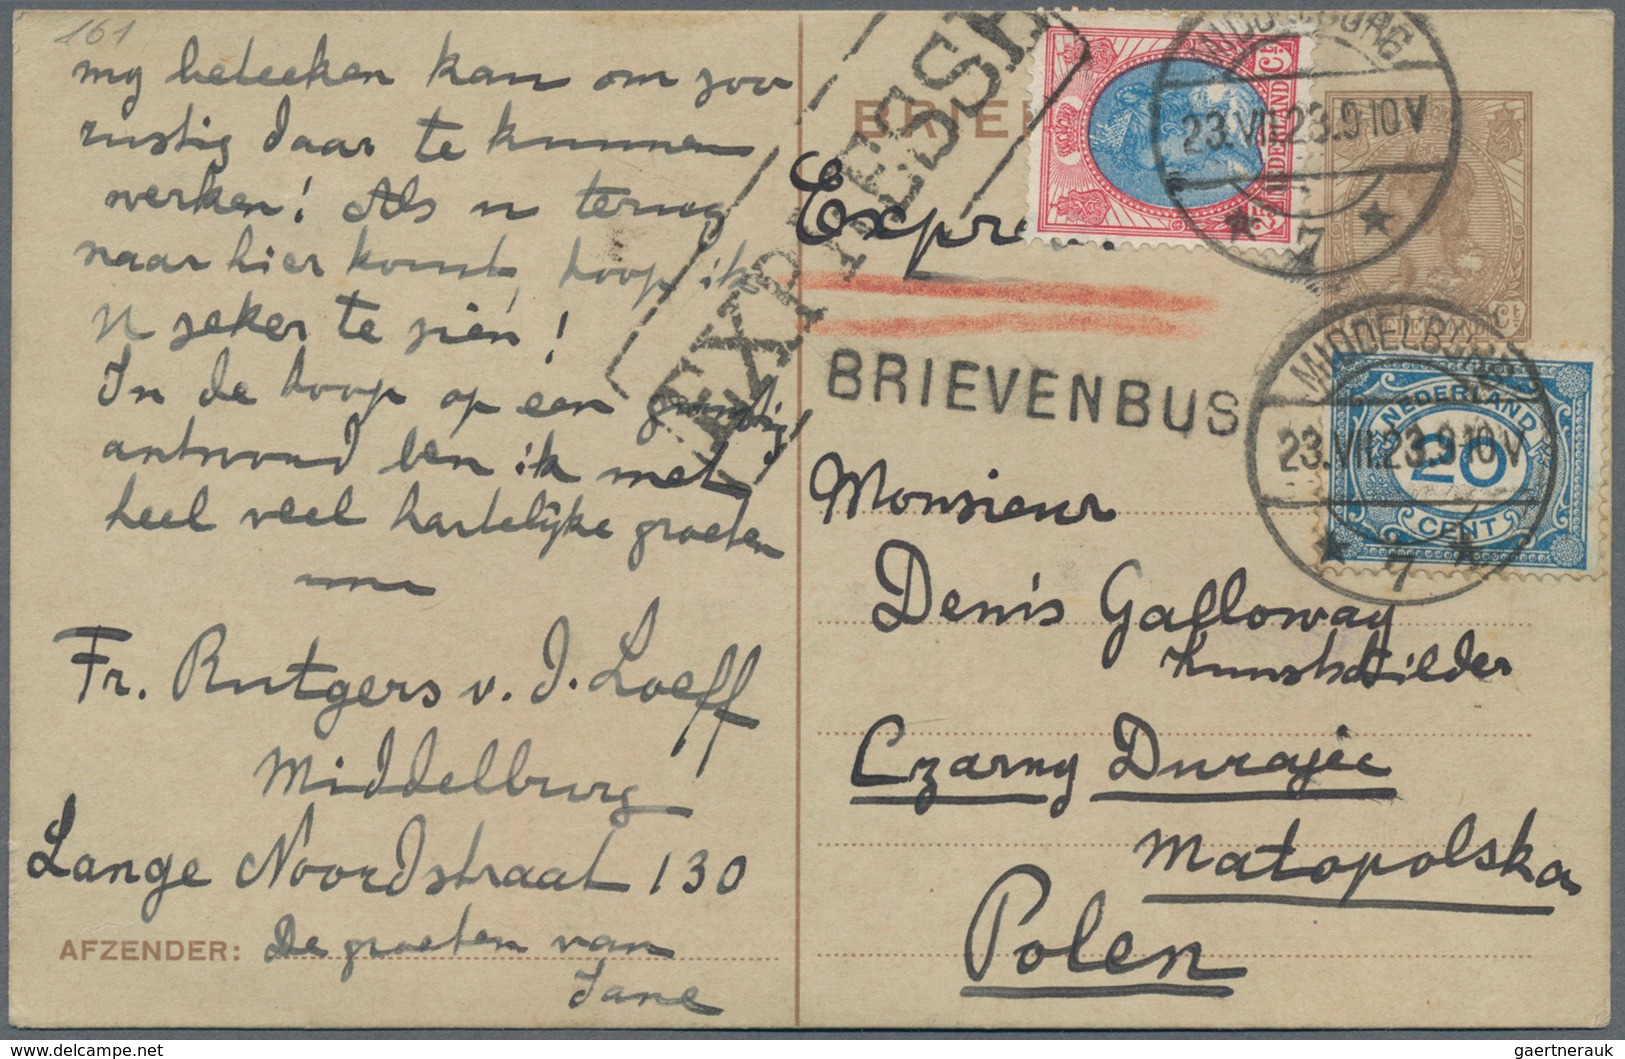 161
my beteeken kan om zoo
rustig daar te kunnen
werken! Als u terug
naar hier komt, hoop ik
u zeker te zien!
In de hoop op een gunstig
antwoord ben ik met
heel veel hartelijke groeten
Fr. Rutgers v. d. Loeff
Middelburg
Lange Noordstraat 130
AFZENDER: De groeten van
Jane
EXPRESSE
Express
BRIEVENBUS
NEDERLAND
MIDDELBURG
23.VII.23.9-10V
7
NEDERLAND
MIDDELBURG
23.VII.23.9-10V
7
NEDERLAND
20
CENT
Monsieur
Denis Galloway
Kunstschilder
Czarny Dunajec
Małopolska
Polen
delcampe.net
gaertnerauk